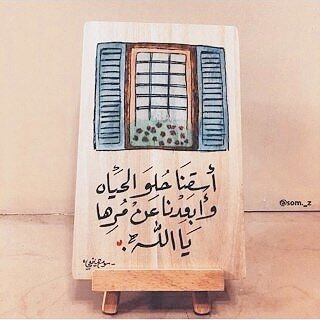 أسقنَا حُلوَ الحيَاه
وأبعدْنا عَنْ مُرِها
يَا اللّٰه.
@som._z